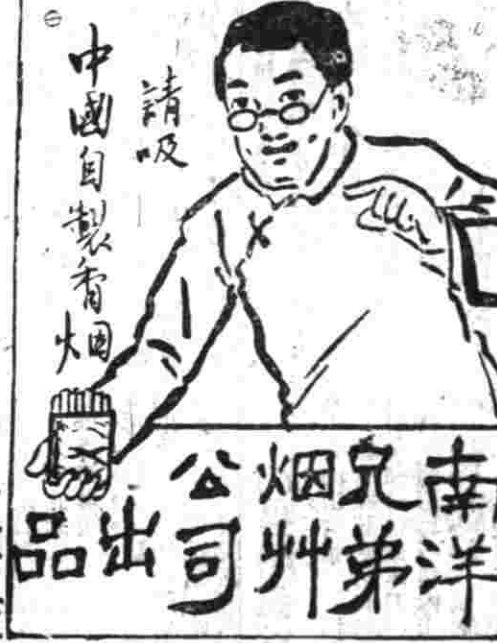 請吸
中國自製香烟
南洋
兄弟
烟艸
公司
出品